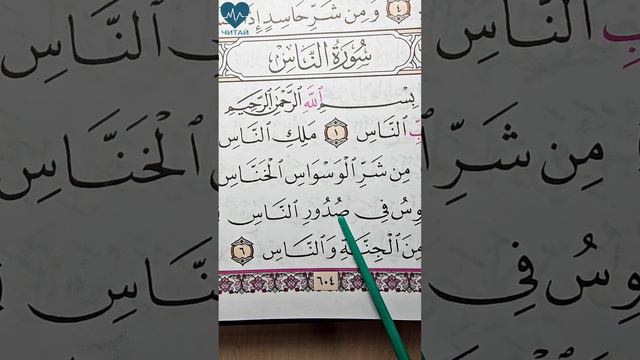 ЧИТАЙ
وَمِن شَرِّ حَاسِدٍ إِذَ ٤
سُورَةُ النَّاسِ
بِسْمِ ٱللَّهِ ٱلرَّحْمَٰنِ ٱلرَّحِيمِ
بِّ ٱلنَّاسِ ١ مَلِكِ ٱلنَّاسِ
مِن شَرِّ ٱلْوَسْوَاسِ ٱلْخَنَّاسِ
وِسُ فِي صُدُورِ ٱلنَّاسِ
مِنَ ٱلْجِنَّةِ وَٱلنَّاسِ ٦
٦٠٤